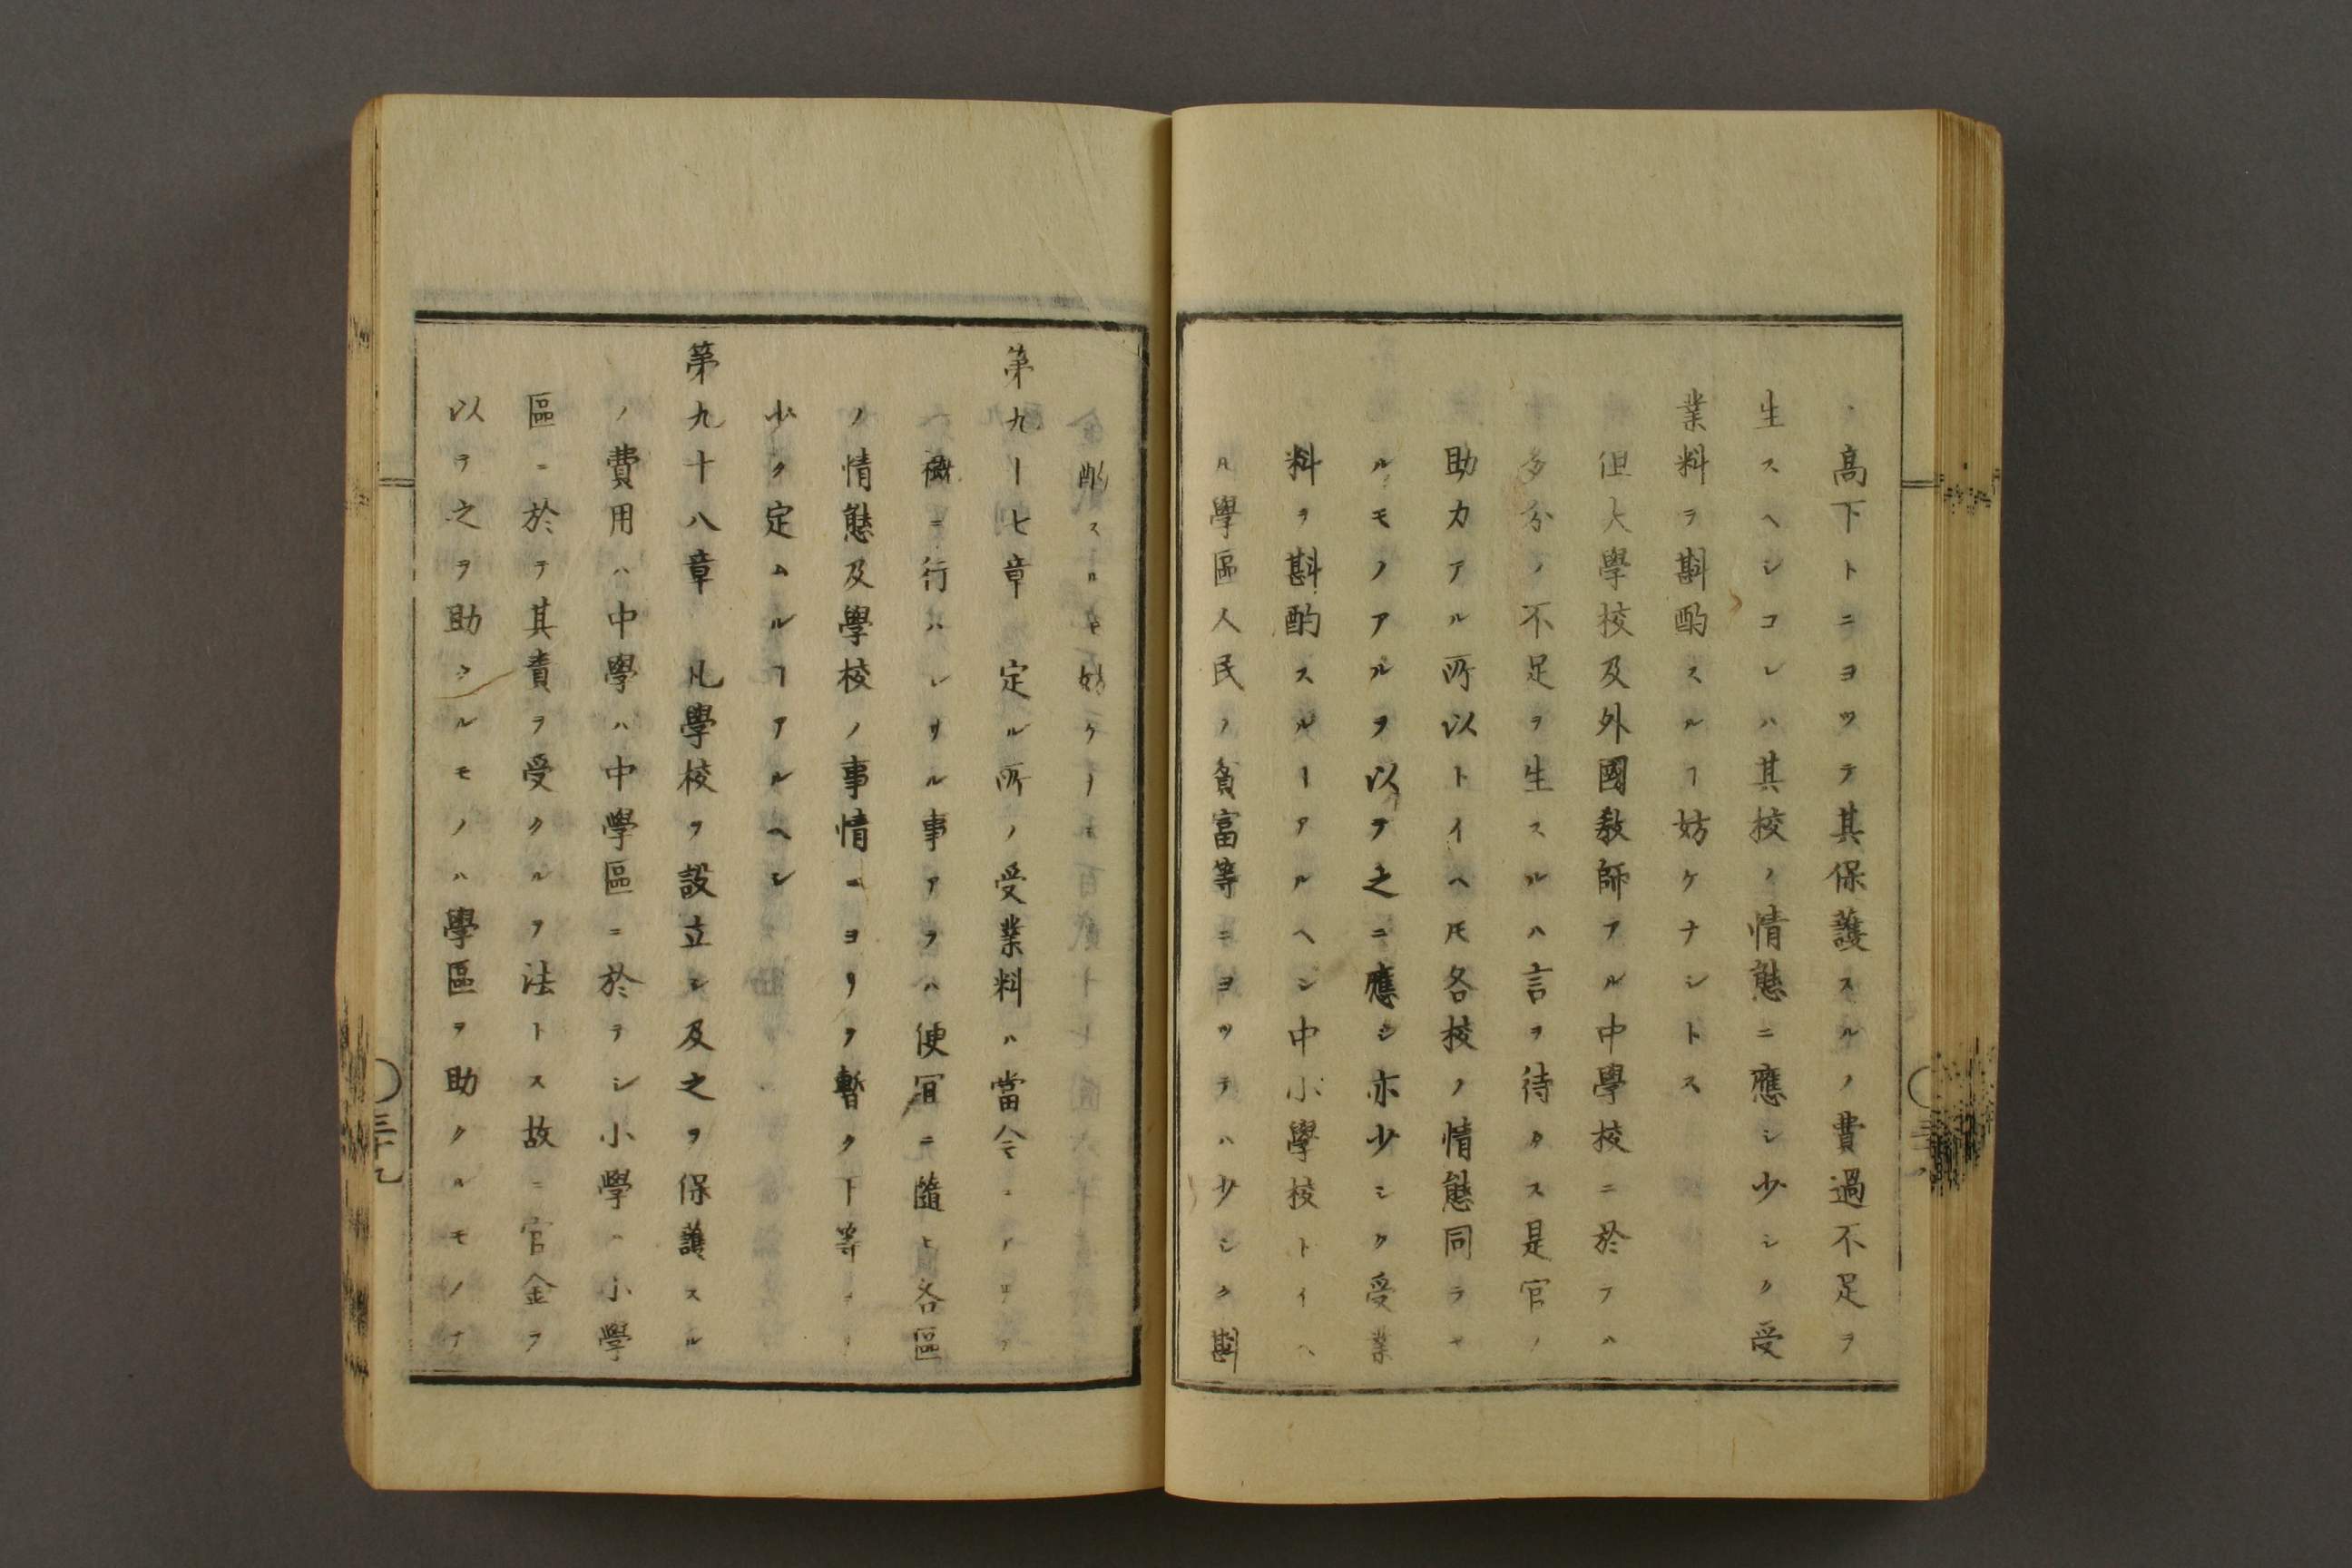 高下トニヨツテ其保護スルノ費過不足ヲ
生スヘシコレハ其校ノ情態ニ應シ少シク受
業料ヲ斟酌スルヿ妨ケナシトス
但大學校及外國敎師アル中學校ニ於テハ
多分ノ不足ヲ生スルハ言ヲ待タス是官ノ
助力アル所以トイヘ𪜈各校ノ情態同ラサ
ルモノアルヲ以テ之ニ應シ亦少シク受業
料ヲ斟酌スルヿアルヘシ中小學校トイヘ
𪜈學區人民ノ貧富等ニヨツテハ少シク斟
酌スルヿ妨ケナ
第九十七章 定ル所ノ受業料ハ當今ニアリテ
ハ概ニ行ハレサル事アラハ便冝ニ隨ヒ各區
ノ情態及學校ノ事情ニヨリテ暫ク下等
少ク定ムルヿアルヘシ
第九十八章 凡學校ヲ設立シ及之ヲ保護スル
ノ費用ハ中學ハ中學區ニ於テシ小學ハ小學
區ニ於テ其責ヲ受クルヲ法トス故ニ官金ヲ
以テ之ヲ助クルモノハ學區ヲ助クルモノナ
三十九